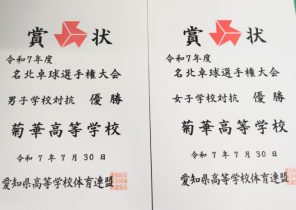 賞状
令和7年度
名北卓球選手権大会
男子学校対抗 優勝
菊華高等学校
令和7年7月30日
愛知県高等学校体育連盟
賞状
令和7年度
名北卓球選手権大会
女子学校対抗 優勝
菊華高等学校
令和7年7月30日
愛知県高等学校体育連盟